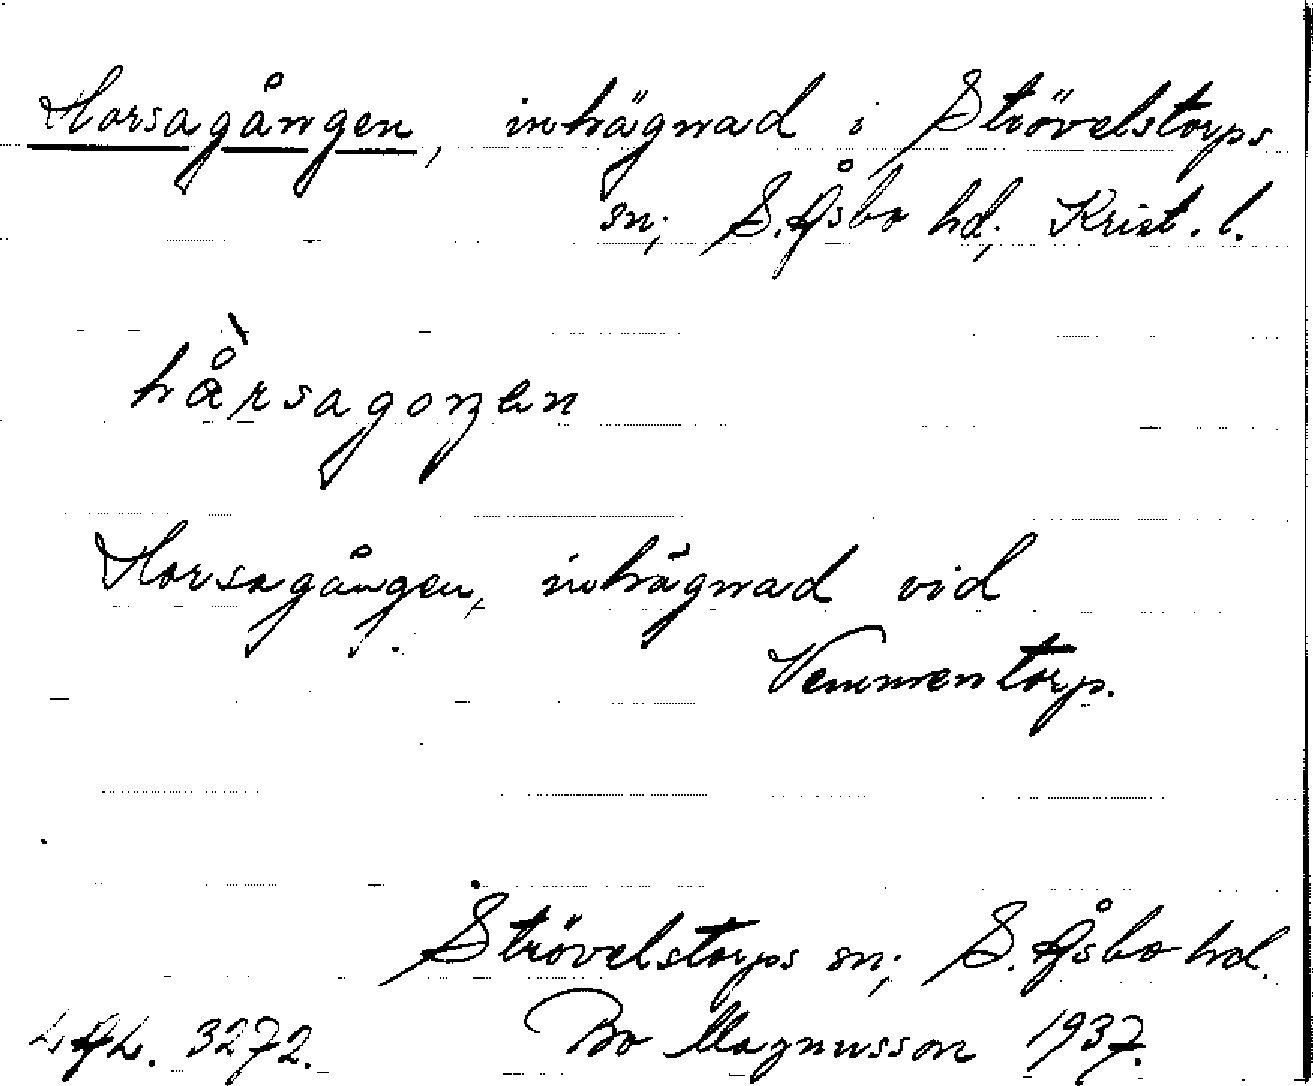 Horsagången, inhägnad i Strövelstorps
sn; S. Åsbo hd; Krist. l.
hå̀rsagoŋen
Horsagången, inhägnad vid
Vemmentorp.
Strövelstorps sn; S. Åsbo hd.
LAL. 3272. Bo Magnusson 1937.